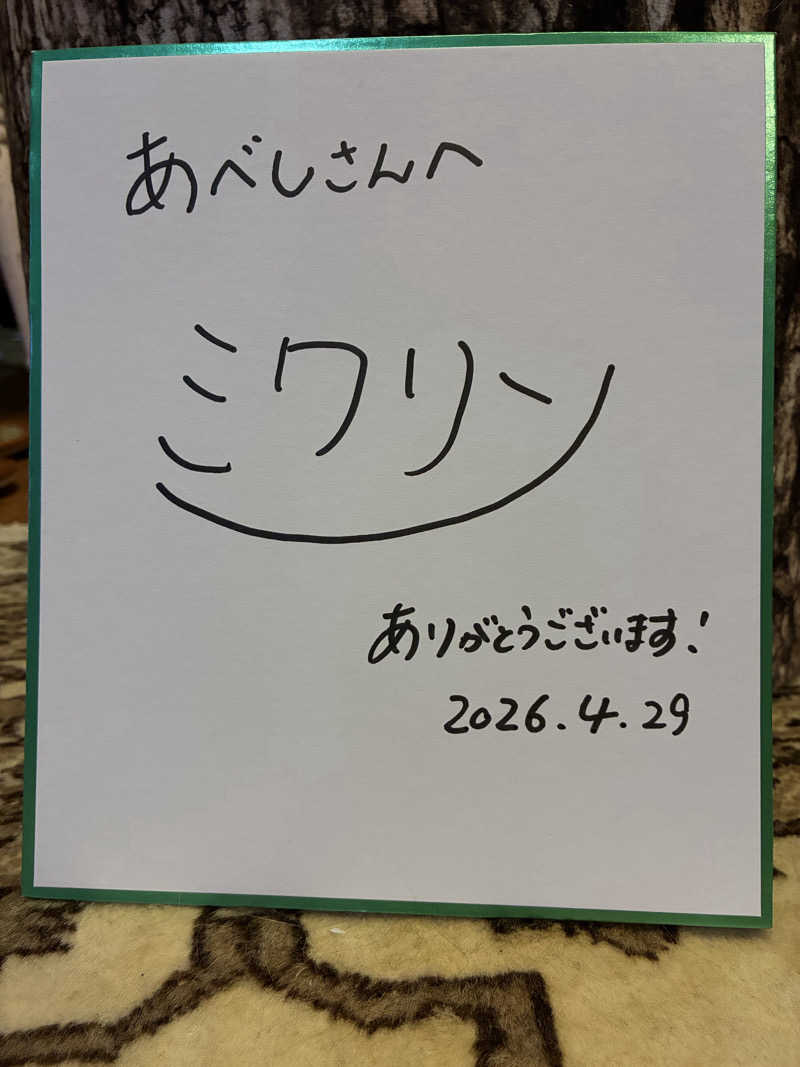 あべしさんへ
ミワリン
ありがとうございます!
2026.4.29